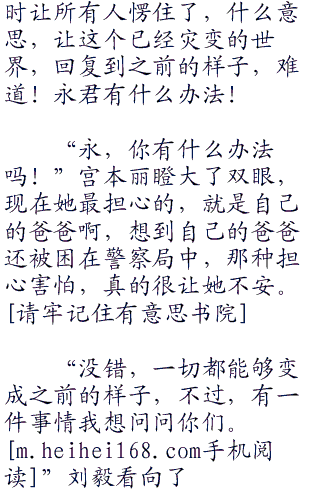 时让所有人愣住了，什么意
思，让这个已经灾变的世
界，回复到之前的样子，难
道！永君有什么办法！
“永，你有什么办法
吗！”宫本丽瞪大了双眼，
现在她最担心的，就是自己
的爸爸啊，想到自己的爸爸
还被困在警察局中，那种担
心害怕，真的很让她不安。
[请牢记住有意思书院]
“没错，一切都能够变
成之前的样子，不过，有一
件事情我想问问你们。
[m.heihei168.com手机阅
读]”刘毅看向了